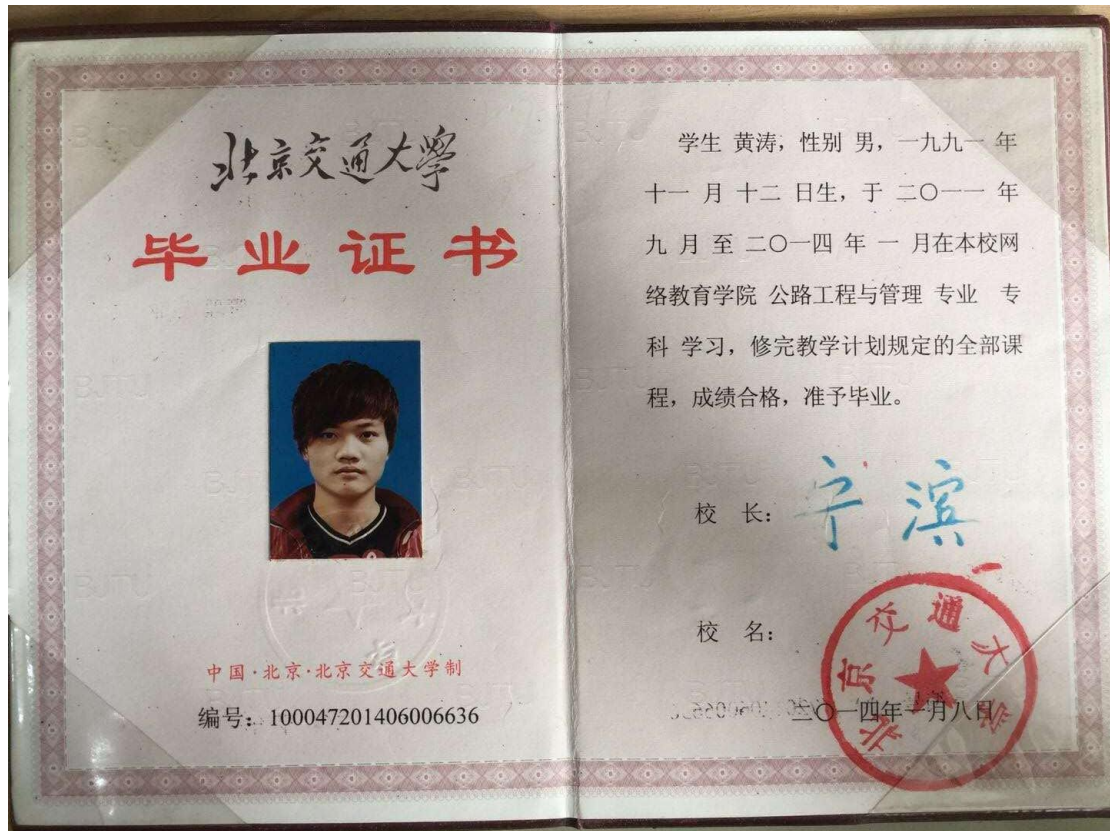 北京交通大學
毕业证书
中国·北京·北京交通大学制
编号：100047201406006636
学生 黄涛，性别 男，一九九一 年
十一 月 十二 日生，于 二〇一一 年
九 月 至 二〇一四 年 一 月在本校网
络教育学院 公路工程与管理 专业 专
科 学习，修完教学计划规定的全部课
程，成绩合格，准予毕业。
校 长：宁滨
校 名：
北京交通大学
二〇一四年一月八日
BJTU